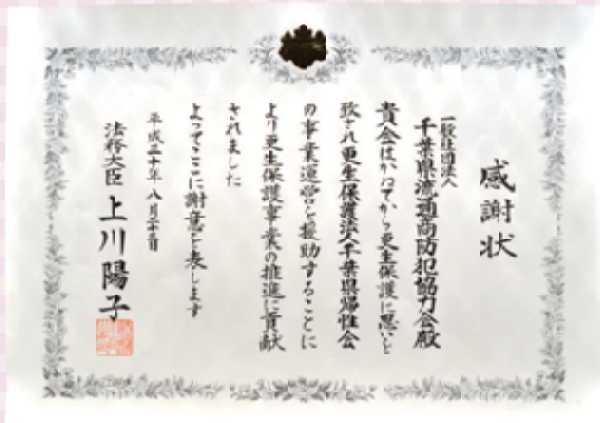 感謝状
一般社団法人
千葉県流通商防犯協力会殿
貴会はかねてから更生保護に思いを
致され更生保護法人千葉県帰性会
の事業運営を援助することに
より更生保護事業の推進に貢献
されました
よってここに謝意を表します
平成三十年八月十三日
法務大臣 上川陽子